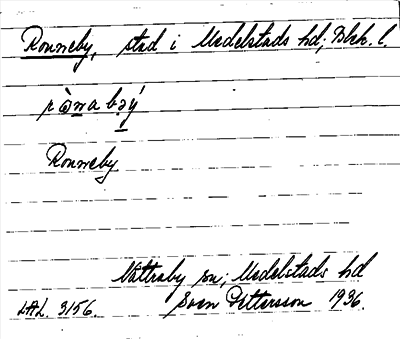 Ronneby, stad i Medelstads hd; Blek. l.
ròna bəý
Ronneby
Nättraby sn; Medelstads hd
LAL 3156. Sven Pettersson 1936.